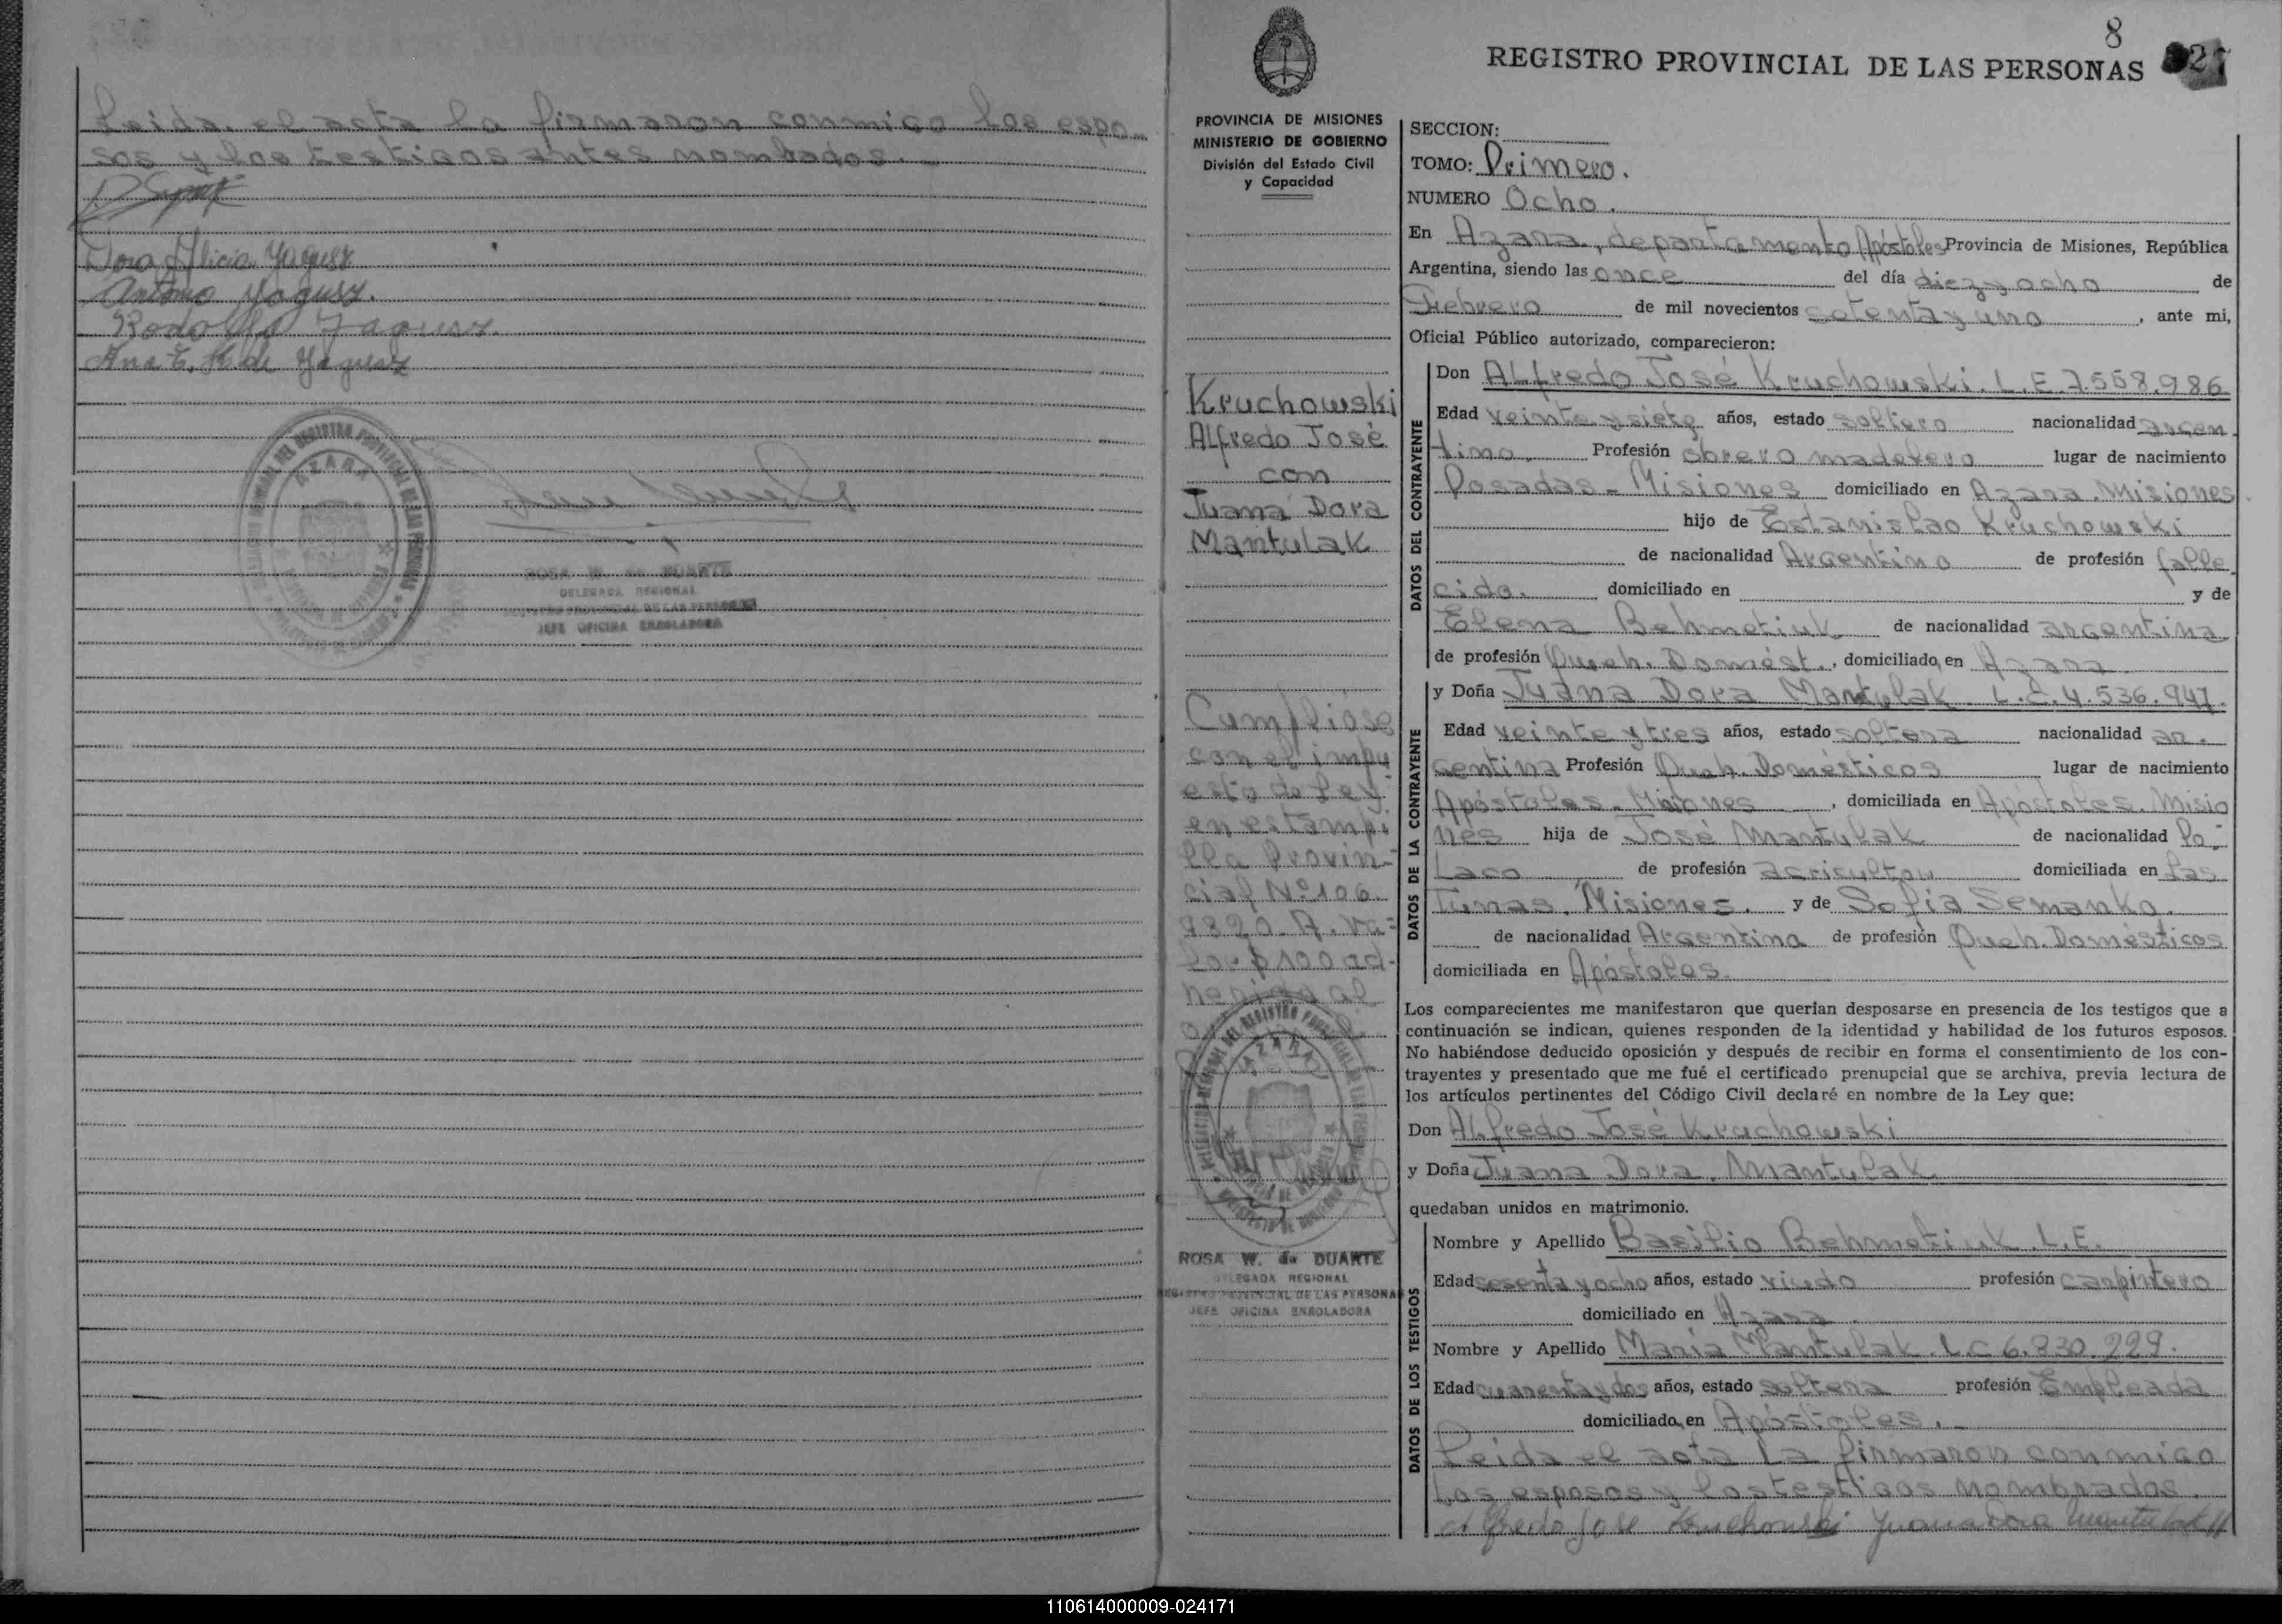 Leida el acta la firmaron conmigo los espo-
sos y los testigos antes nombrados.
Dora Alicia Yagusz
Antonio Yagusz.
Rodolfo Yagusz.
Ana E. H. de Yagusz
AZARA
ROSA W. de DUARTE
DELEGADA REGIONAL
REGISTRO PROVINCIAL DE LAS PERSONAS
JEFE OFICINA ENROLADORA
8
REGISTRO PROVINCIAL DE LAS PERSONAS
PROVINCIA DE MISIONES
MINISTERIO DE GOBIERNO
División del Estado Civil
y Capacidad
Kruchowski
Alfredo José
con
Juana Dora
Mantulak
Cumpliose
con el impu
esto de Ley
en estampi
lla Provin-
cial Nº 106
9820-A. Va-
lor $ 100 ad-
herida al
AZARA
ROSA W. de DUARTE
DELEGADA REGIONAL
REGISTRO PROVINCIAL DE LAS PERSONAS
JEFE OFICINA ENROLADORA
SECCION:
TOMO: Primero.
NUMERO Ocho.
En Azara, departamento Apóstoles Provincia de Misiones, República
Argentina, siendo las once del día diez y ocho de
Febrero de mil novecientos setenta y uno, ante mi,
Oficial Público autorizado, comparecieron:
DATOS DEL CONTRAYENTE
Don Alfredo José Kruchowski. L.E. 7.558.986
Edad veinte y siete años, estado soltero nacionalidad argen
tino. Profesión obrero maderero lugar de nacimiento
Posadas - Misiones domiciliado en Azara. Misiones
hijo de Estanislao Kruchowski
de nacionalidad Argentino de profesión falle
cido. domiciliado en y de
Elena Behmetiuk de nacionalidad argentina
de profesión Queh. Domést., domiciliado en Azara
DATOS DE LA CONTRAYENTE
y Doña Juana Dora Mantulak L.C. 4.536.947.
Edad veinte y tres años, estado soltera nacionalidad ar.
gentina Profesión Queh. Domésticos lugar de nacimiento
Apóstoles. Misiones, domiciliada en Apóstoles. Misio
nes hija de José Mantulak de nacionalidad Po-
laco de profesión agricultor domiciliada en Las
Tunas, Misiones. y de Sofía Semanko.
de nacionalidad Argentina de profesión Queh. Domésticos
domiciliada en Apóstoles.
Los comparecientes me manifestaron que querían desposarse en presencia de los testigos que a
continuación se indican, quienes responden de la identidad y habilidad de los futuros esposos.
No habiéndose deducido oposición y después de recibir en forma el consentimiento de los con-
trayentes y presentado que me fué el certificado prenupcial que se archiva, previa lectura de
los artículos pertinentes del Código Civil declaré en nombre de la Ley que:
Don Alfredo José Kruchowski
y Doña Juana Dora Mantulak
quedaban unidos en matrimonio.
DATOS DE LOS TESTIGOS
Nombre y Apellido Basilio Behmetiuk. L.E.
Edad sesenta y ocho años, estado viudo profesión carpintero
domiciliado en Azara
Nombre y Apellido María Mantulak. L.C 6.830.229.
Edad cuarenta y dos años, estado soltera profesión Empleada
domiciliado en Apóstoles.
Leida el acta la firmaron conmigo
los esposos y los testigos nombrados.
Alfredo José Kruchowski Juana Dora Mantulak
110614000009-024171